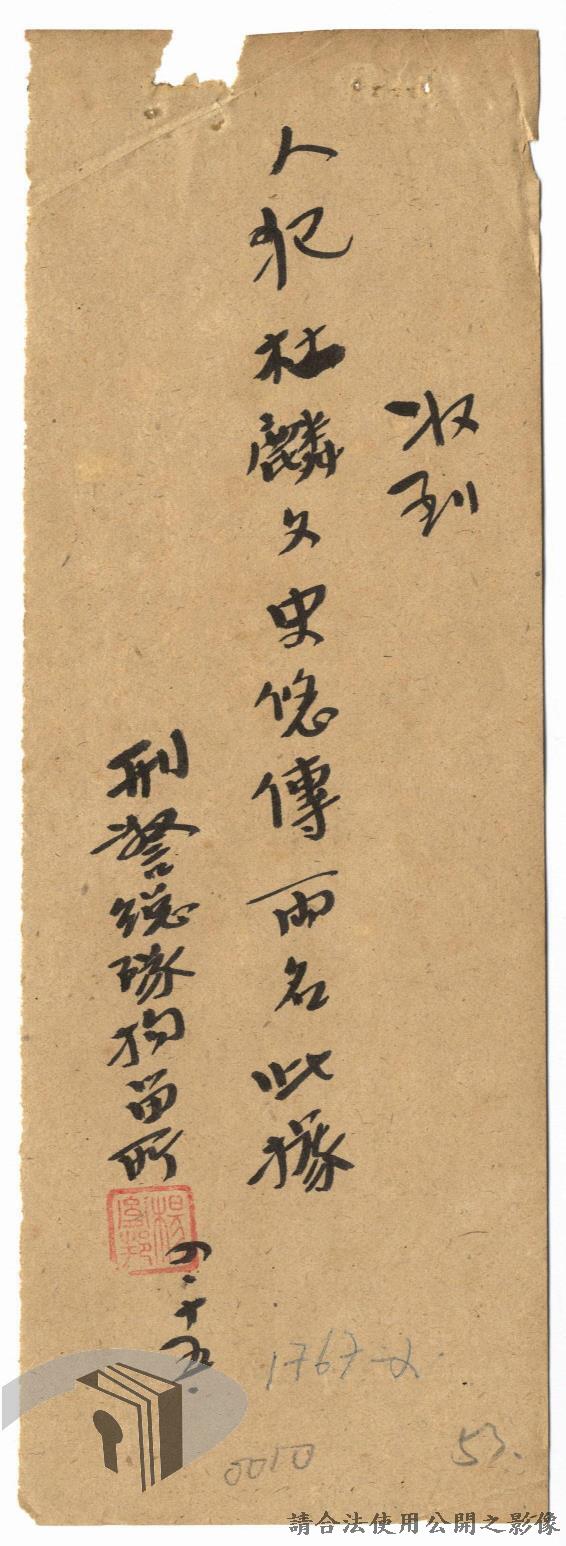 收到
人犯杜麟文史悠傳兩名此據
刑警總隊拘留所
四.十五.
1767-2
0010
53.
請合法使用公開之影像